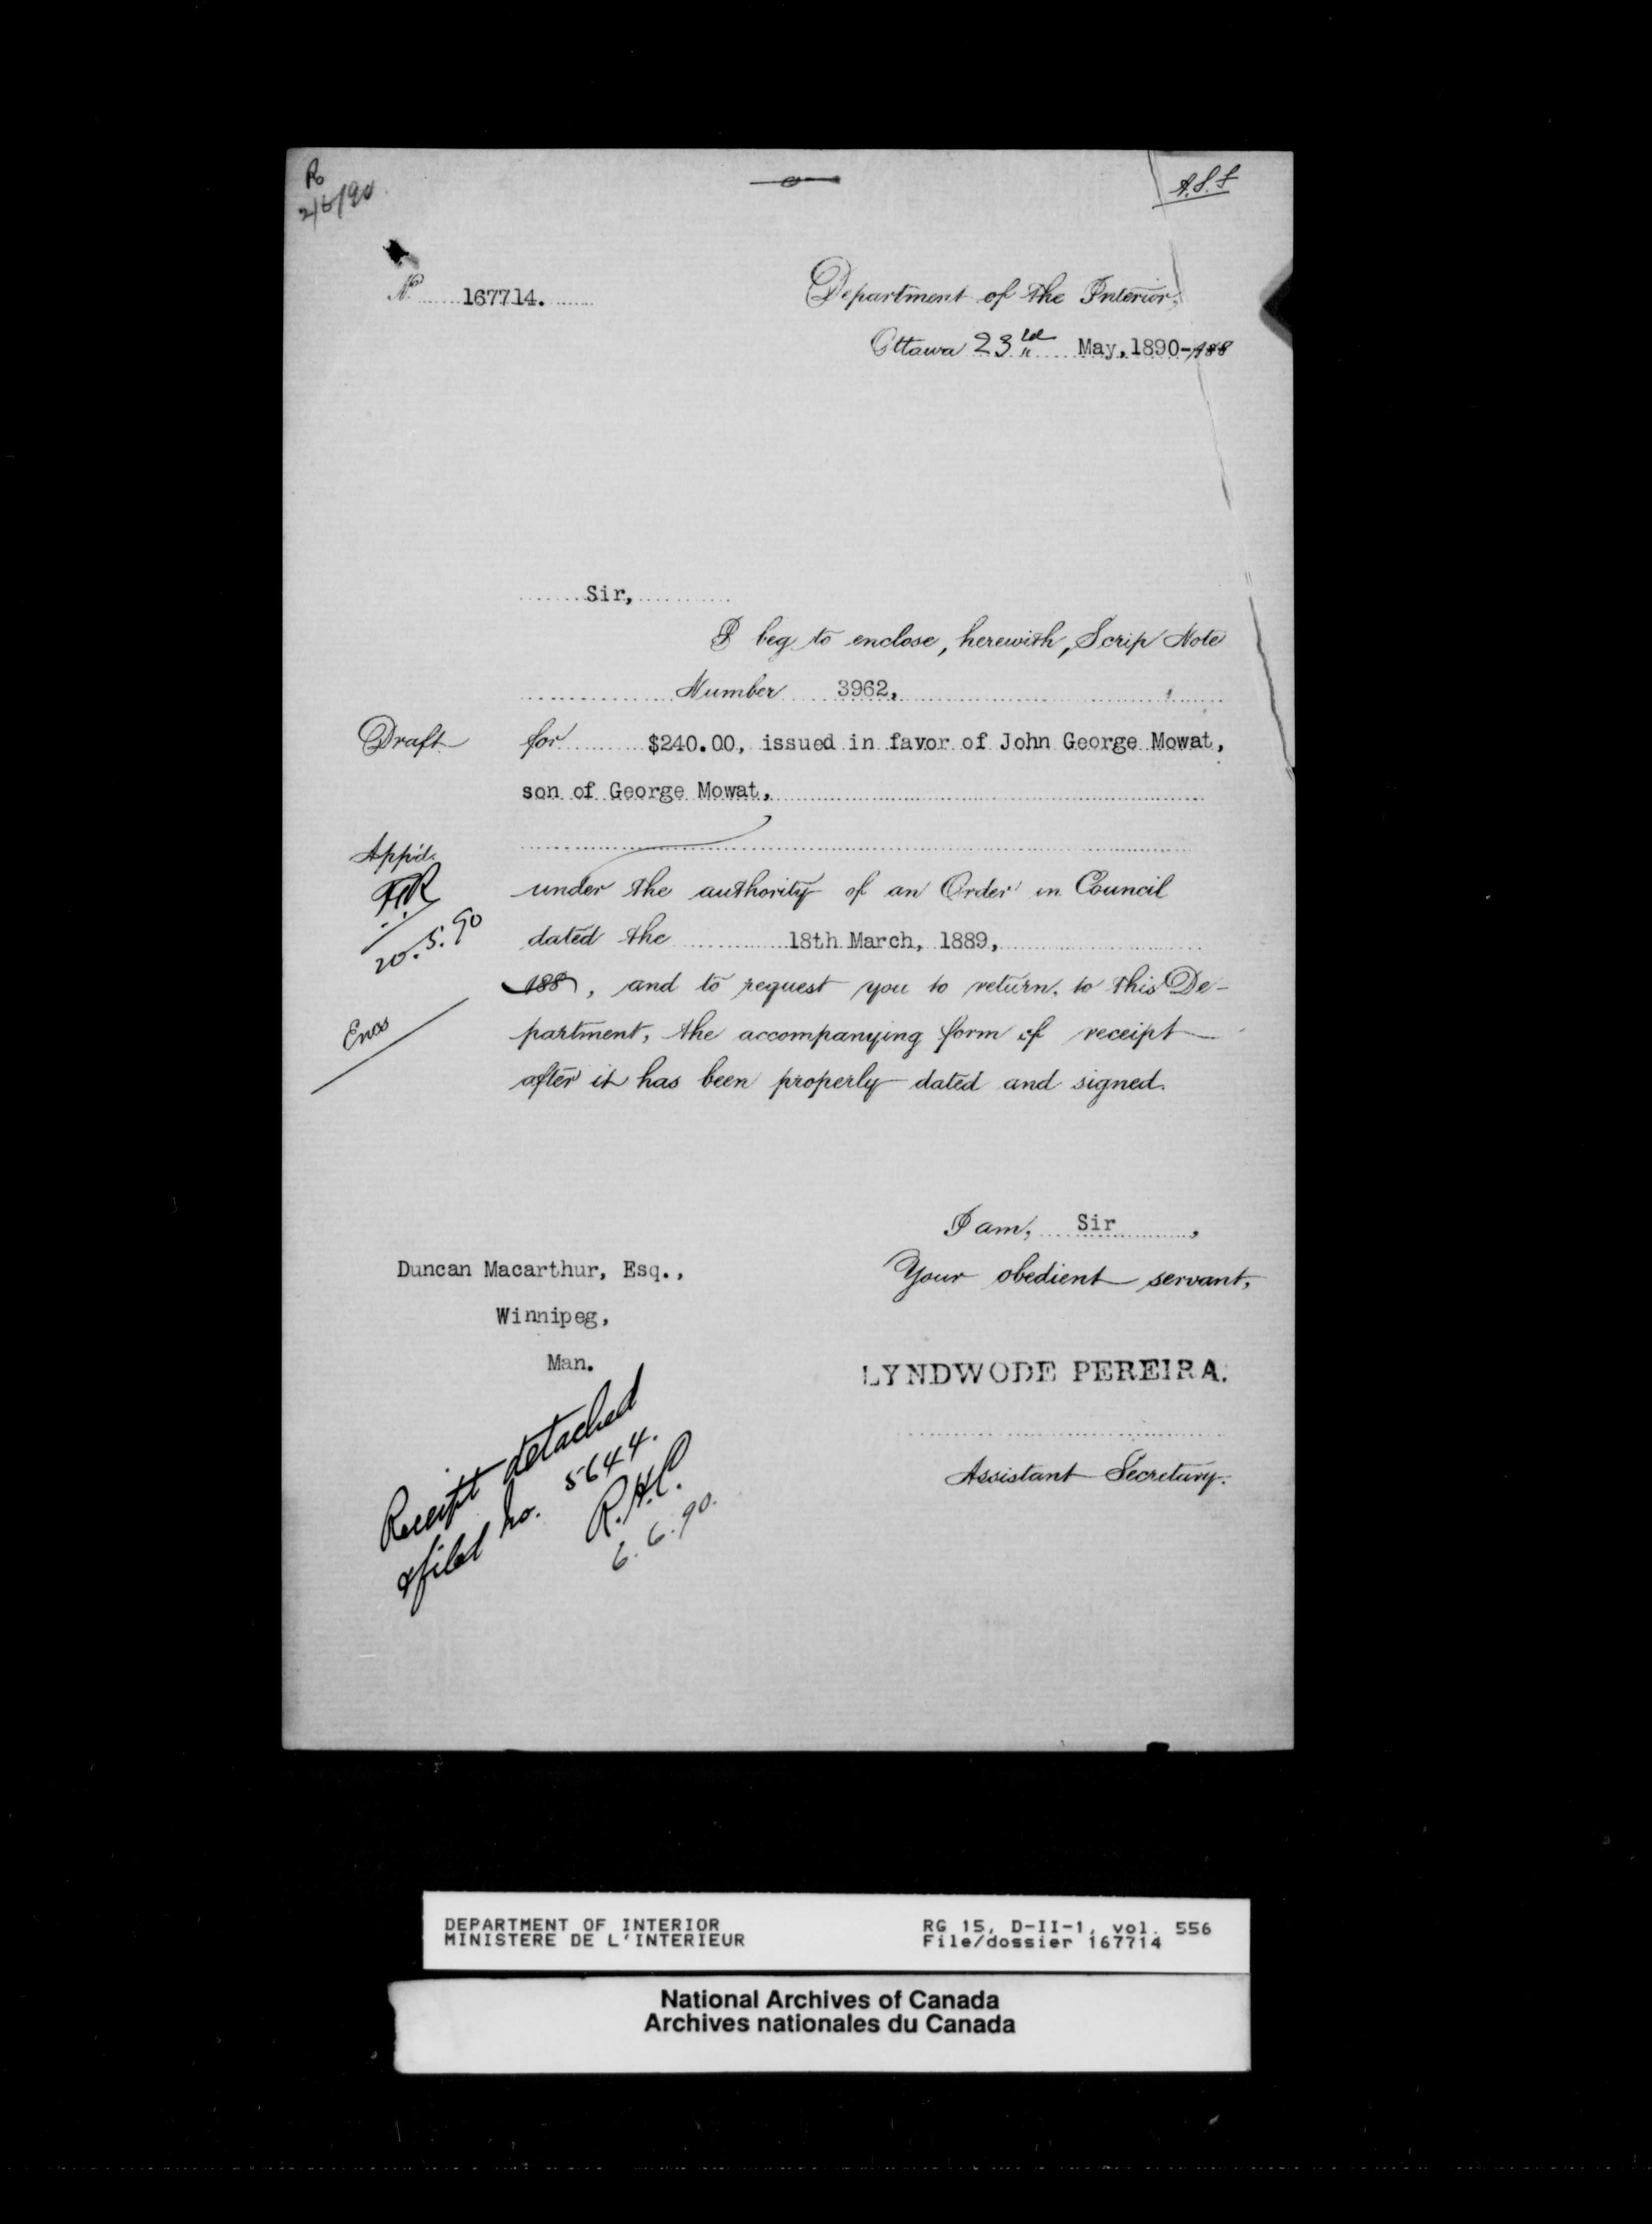 Ro
2/6/90
A.S.S
No 167714.
Department of the Interior,
Ottawa 23rd May, 1890-188
Sir,
I beg to enclose, herewith, Scrip Note
Number 3962,
Draft for $240.00, issued in favor of John George Mowat,
son of George Mowat,
App'd.
under the authority of an Order in Council
20.5.90
dated the 18th March, 1889,
188 , and to request you to return, to this De-
Encs
partment, the accompanying form of receipt
after it has been properly dated and signed.
I am, Sir ,
Your obedient servant,
Duncan Macarthur, Esq.,
Winnipeg,
Man.
LYNDWODE PEREIRA.
Assistant Secretary.
Receipt detached
& filed no. 5644.
R.H.C.
6.6.90.
DEPARTMENT OF INTERIOR
MINISTERE DE L'INTERIEUR
RG 15, D-II-1, vol. 556
File/dossier 167714
National Archives of Canada
Archives nationales du Canada